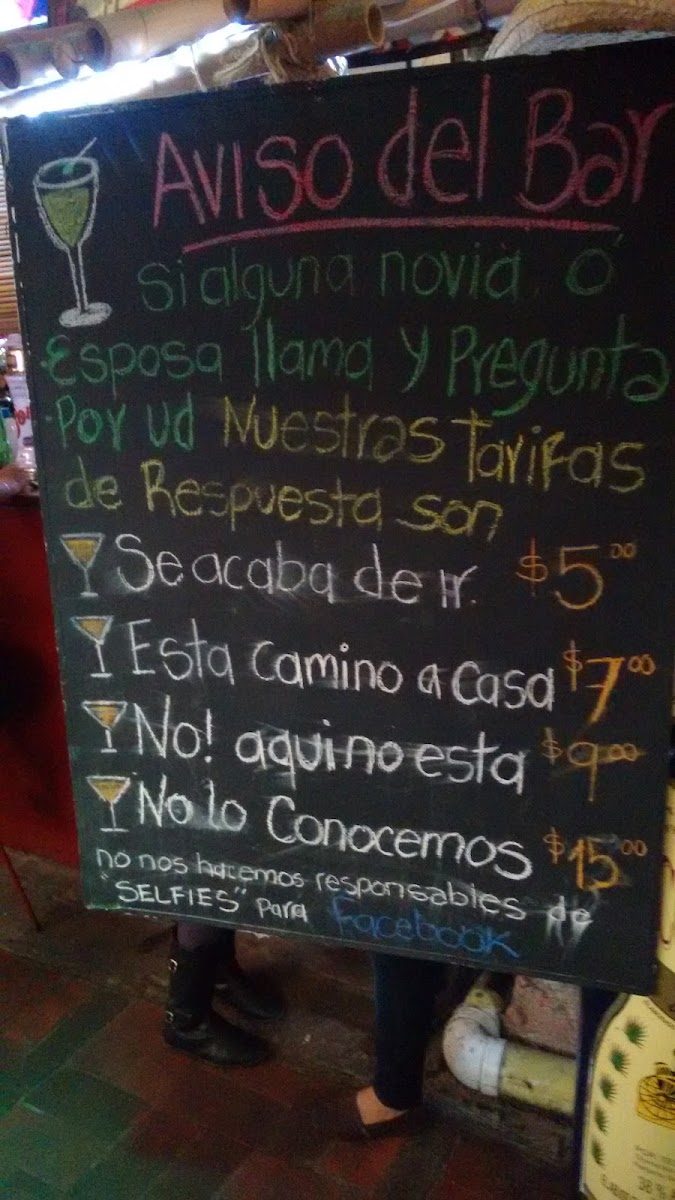 Aviso del Bar
Si alguna novia. ó
Esposa llama y Pregunta
Por ud Nuestras Tarifas
de Respuesta son
Se acaba de ir. $5.00
Esta camino a casa $7.00
No! aqui no esta $9.00
No lo Conocemos $15.00
no nos hacemos responsables de
"SELFIES" para Facebook
38%